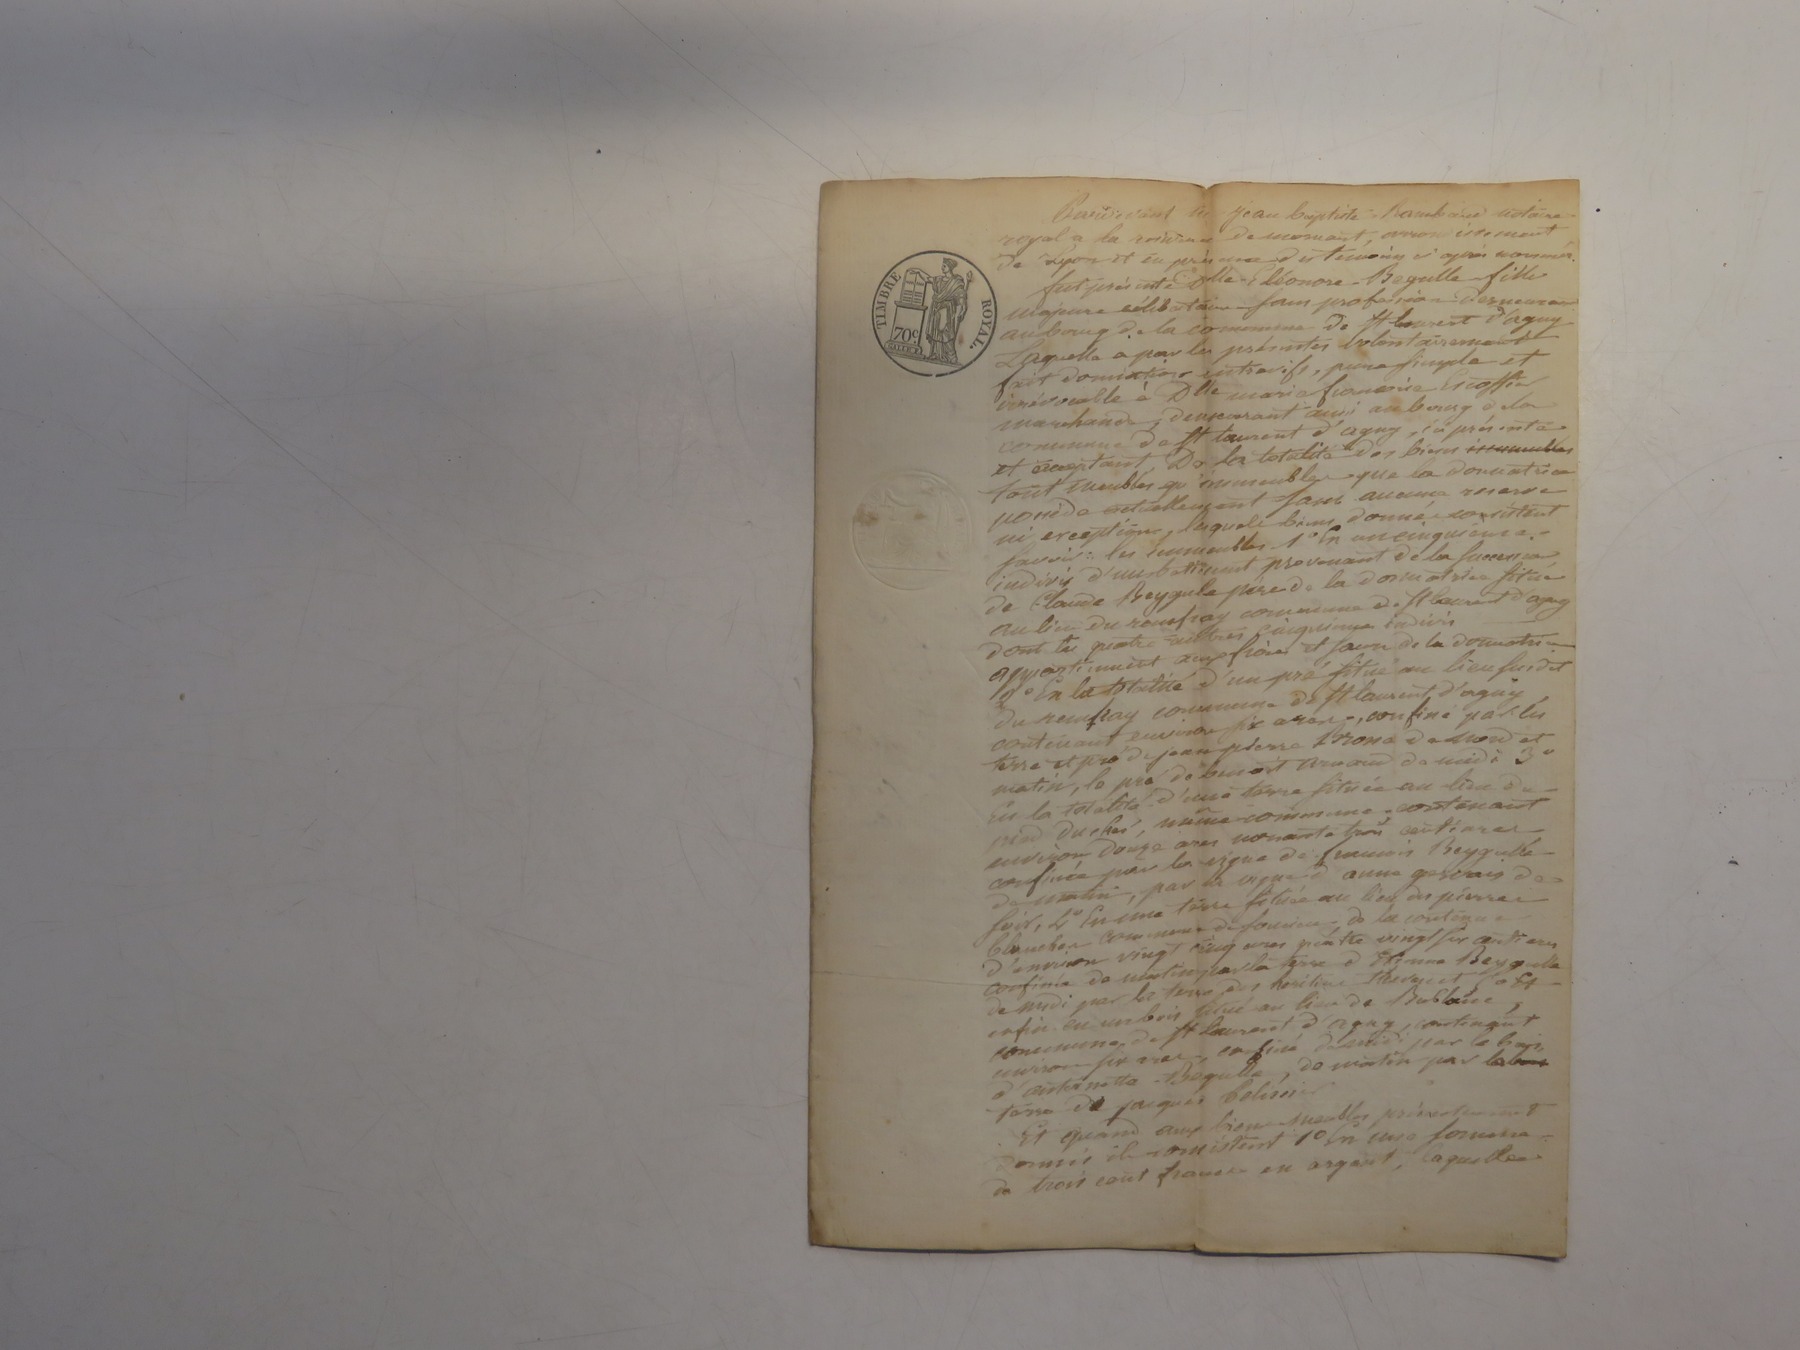 TIMBRE ROYAL.
70c
Pardevant Me jean baptiste Rambaud notaire
royal a la residence de mornant, arrondissement
de Lyon et en présence des temoins ci après nommés.
fut présente Dlle Eléonore Begulle fille
majeure célibataire sans profession demeurant
au bourg de la commune de St laurent d'agny
Laquelle a par les présentes volontairement
fait donnation entrevifs, pure simple et
irrévocable à Dlle marie françoise Escoffier
marchande, demeurant aussi au bourg de la
commune de St laurent d'agny, ici présente
et acceptant, De la totalité des biens immeubles
tant meubles qu'immeubles que la donnatrice
possède actuellement sans aucune reserve
ni exception, lesquels biens donnés consistent
savoir: les immeubles 1o En un cinquième
indivis d'un batiment provenant de la succession
de Claude Beygule père de la donnatrice situé
au lieu du commune de St laurent d'agny
dont les quatre autres cinquièmes indivis
appartiennent aux frères et sœurs de la donnatrice
2o En la totalité d'un pré situé au lieu susdit
du commune de St laurent d'agny
contenant environ six ares, confiné par les
terre et pré de jean pierre de nord et
matin, le pré de benoit arnaud de midi 3o
En la totalité d'une terre située au lieu de
même commune contenant
environ douze ares nonante trois centiares
confinée par la vigne de françois Beygulle
de matin, par la vigne d'anne de
soir, 4o En une terre située au lieu des pierres
blanches commune de de la contenue
d'environ vingt cinq ares quatre vingt six centiares
confinée de matin par la terre d'Etienne Beygulle
de midi par la terre des héritiers et
enfin en un bois situé au lieu de
commune de St laurent d'agny, contenant
environ six ares, confiné de midi par le bois
d'antoinette Begulle, de matin par la
terre de jacques
Et quand aux biens meubles présentement
donnés ils consistent 1o En une somme
de trois cent francs en argent, laquelle